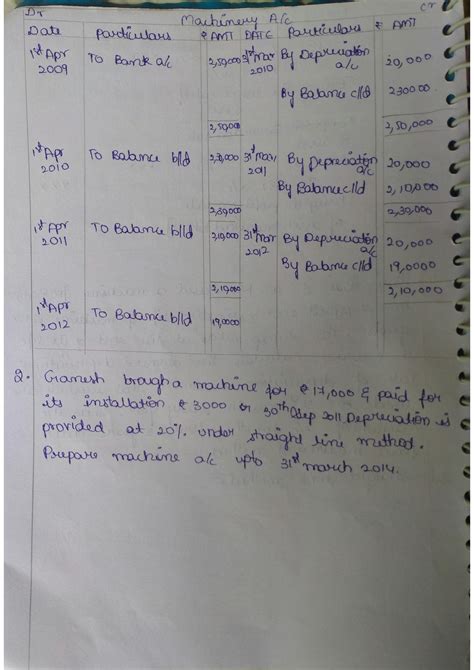 Dr Machinery A/c Cr
Date Particulars ₹ AMT DATE Particulars ₹ AMT
1st Apr 2009 To Bank a/c 2,50,000 31st Mar 2010 By Depreciation a/c 20,000
By Balance c/d 230000
2,50,000 2,50,000
1st Apr 2010 To Balance b/d 2,30,000 31st Mar 2011 By Depreciation a/c 20,000
By Balance c/d 2,10,000
2,30,000 2,30,000
1st Apr 2011 To Balance b/d 2,10,000 31st Mar 2012 By Depreciation a/c 20,000
By Balance c/d 19,0000
2,10,000 2,10,000
1st Apr 2012 To Balance b/d 19,0000
2. Ganesh brough a machine for ₹ 17,000 & paid for
its installation ₹ 3000 or 30th Sep 2011. Depreciation is
provided at 20% under straight line method.
Prepare machine a/c upto 31st march 2014.